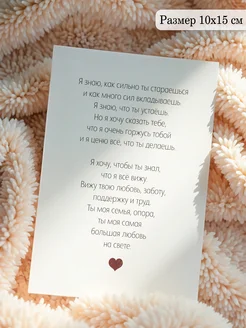 Размер 10х15 см
Я знаю, как сильно ты стараешься
и как много сил вкладываешь.
Я знаю, что ты устаёшь.
Но я хочу сказать тебе,
что я очень горжусь тобой
и я ценю всё, что ты делаешь.
Я хочу, чтобы ты знал,
что я всё вижу.
Вижу твою любовь, заботу,
поддержку и труд.
Ты моя семья, опора,
ты моя самая
большая любовь
на свете